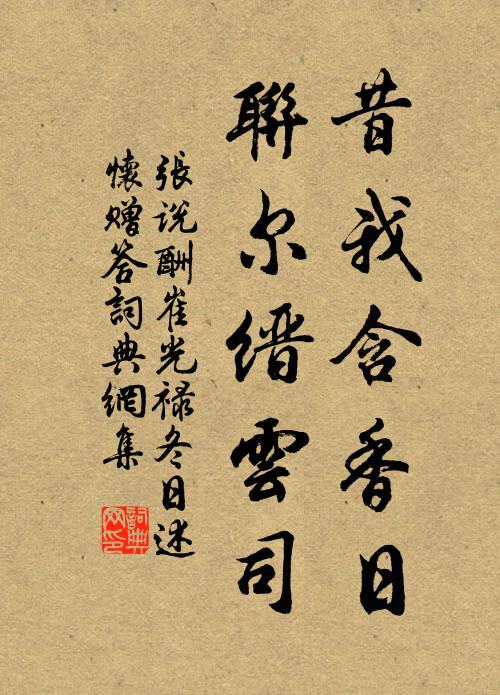 昔我含香日
聯尔缙雲司
張说酬崔光禄冬日述
懷贈答詞典網集
詞典
网印